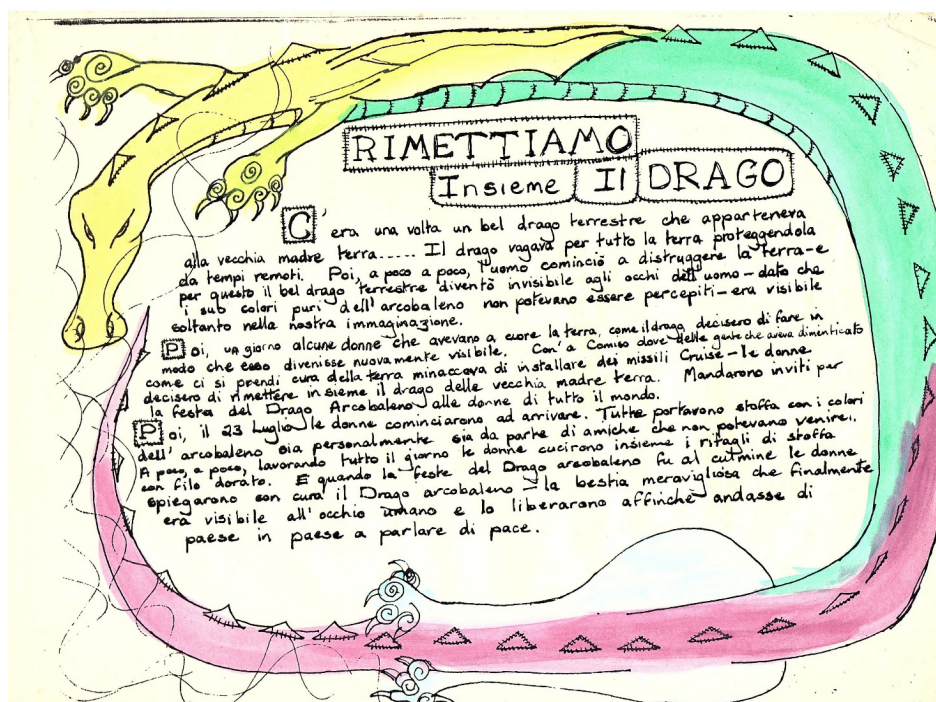 RIMETTIAMO
Insieme Il DRAGO
C'era una volta un bel drago terrestre che apparteneva
alla vecchia madre terra..... Il drago vagava per tutto la terra proteggendola
da tempi remoti. Poi, a poco a poco, l'uomo cominciò a distruggere la terra-e
per questo il bel drago terrestre diventò invisibile agli occhi dell'uomo-dato che
i suo colori puri dell'arcobaleno non potevano essere percepiti-era visibile
soltanto nella nostra immaginazione.
Poi, un giorno alcune donne che avevano a cuore la terra, come il drago, decisero di fare in
modo che esso divenisse nuovamente visibile. Con'a Comiso dove delle gente che aveva dimenticato
come ci si prendi cura della terra minaccava di installare dei missili Cruise-le donne
decisero di rimettere insieme il drago delle vecchia madre terra. Mandarono inviti per
la festa del Drago Arcobaleno alle donne di tutto il mondo.
Poi, il 23 Luglio le donne cominciarono ad arrivare. Tutte portavono stoffa con i colori
dell'arcobaleno sia personalmente sia da parte di amiche che non potevano venirci.
A poco, a poco, lavorando tutto il giorno le donne cucirono insieme i ritagli di stoffa
con filo dorato. E quando la feste del Drago arcobaleno fu al culmine le donne
spiegarono con cura il Drago arcobaleno-la bestia meravigliosa che finalmente
era visibile all'occhio umano e lo liberarono affinchè andasse di
paese in paese a parlare di pace.